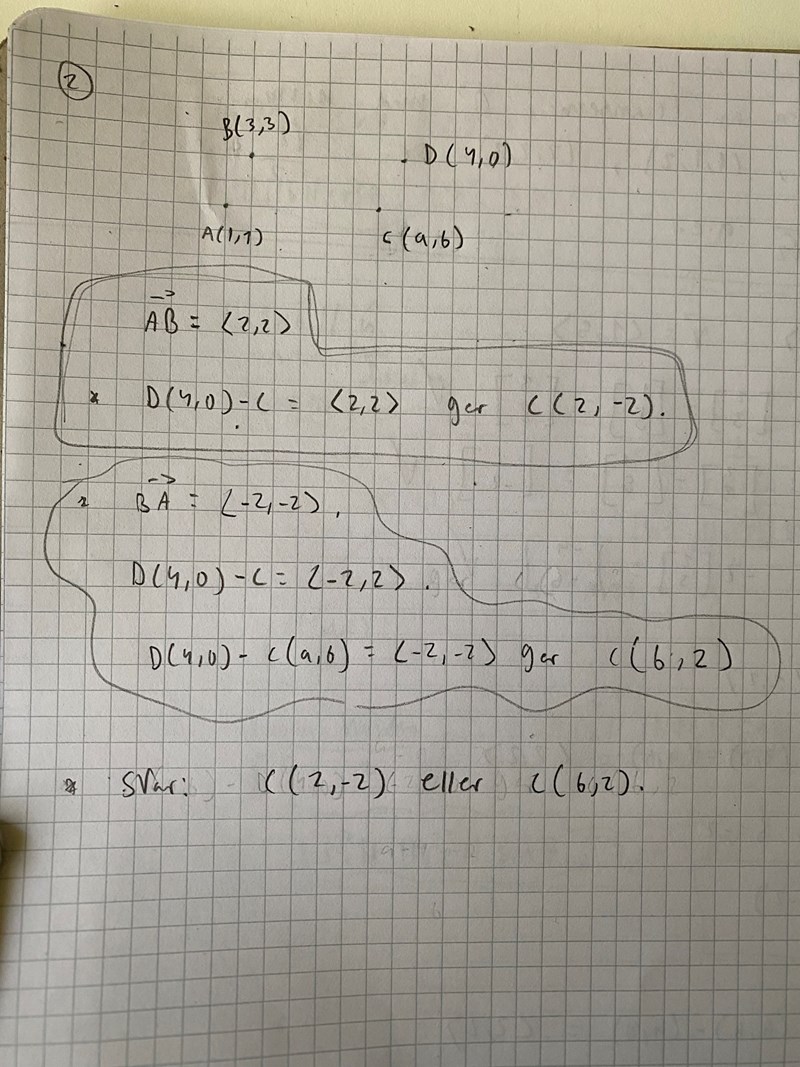 2
B(3,3)
D(4,0)
A(1,1)
C(a,b)
AB = <2,2>
* D(4,0)-C = <2,2> ger C(2,-2).
* BA = <-2,-2>,
D(4,0)-C = <-2,2>.
D(4,0)- C(a,b) = <-2,-2> ger C(6,2)
* Svar: C(2,-2) eller C(6,2).